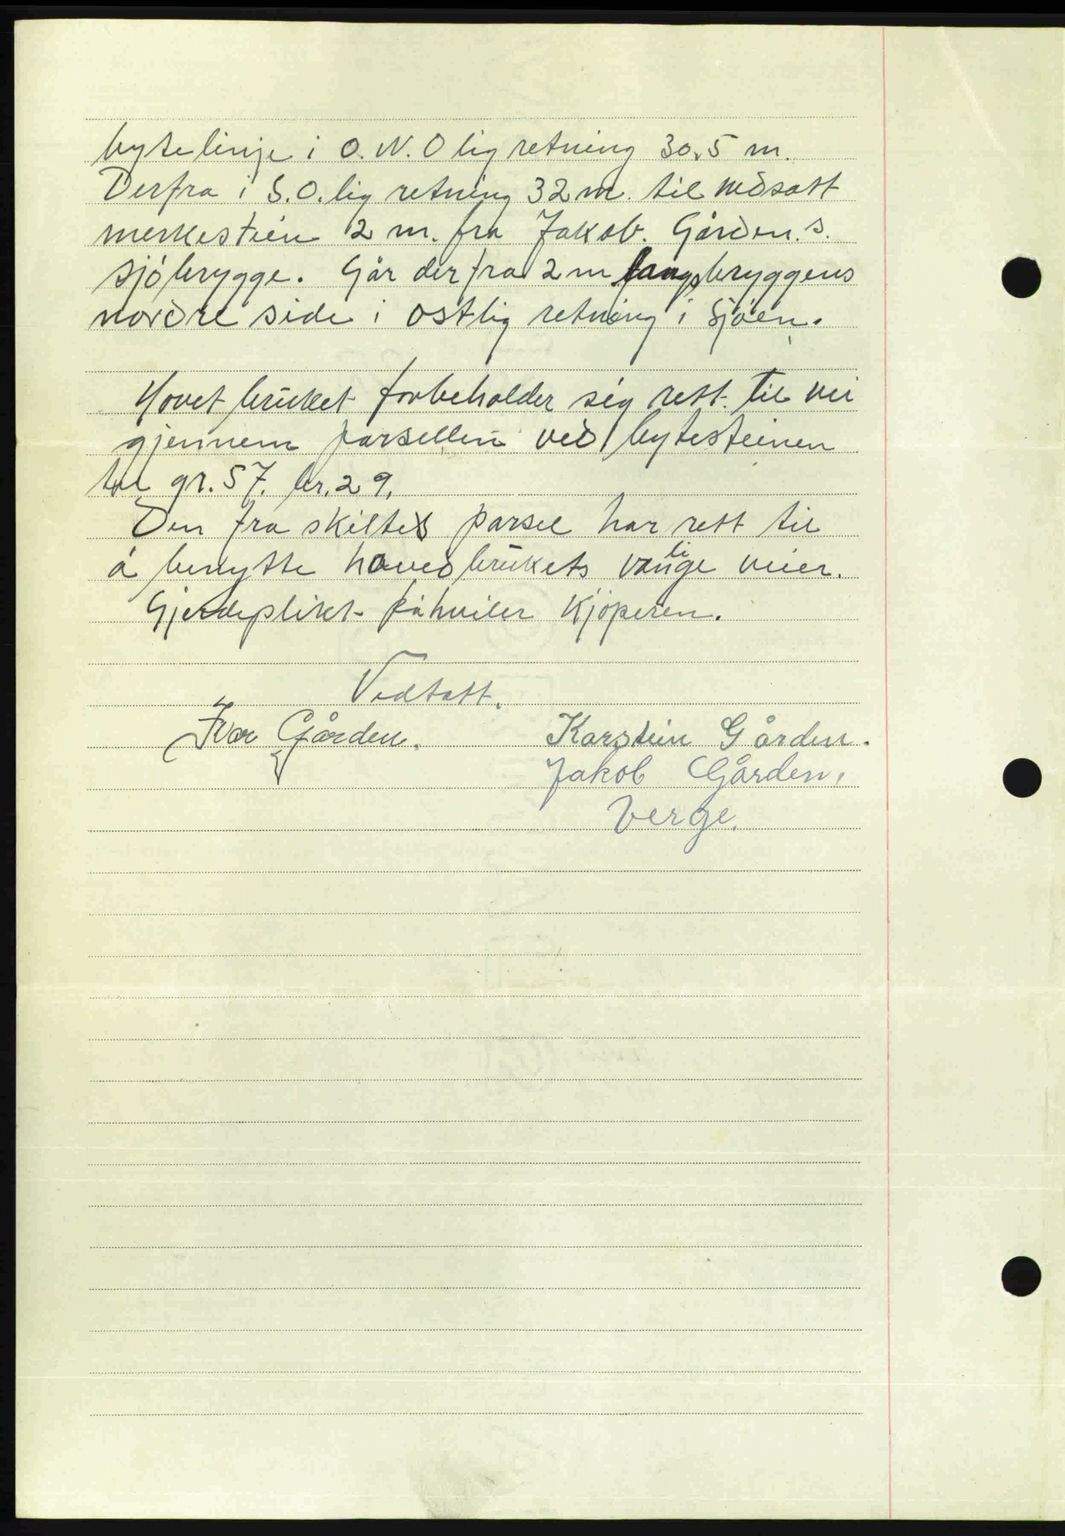 bytelinje i O.N.O lig retning 30,5 m.
Derfra i S.O. lig retning 32 m. til nedsatt
merkestein 2 m. fra Jakob. Gården.s.
sjöbrygge. Går derfra 2 m langs bryggens
nordre side i ostlig retning i Sjöen.
Hovet bruket forbeholder sig rett. til vei
gjennem parsellen ved bytesteinen
til gr. 57. br. 29.
Den fra skiltes parsel har rett til
å benytte hoved brukets vanlige veier.
Gjerdeplikt påhviler Kjöperen.
Vedtatt.
Ivar Gården. Karstein Gården.
Jakob Gården.
Verge.